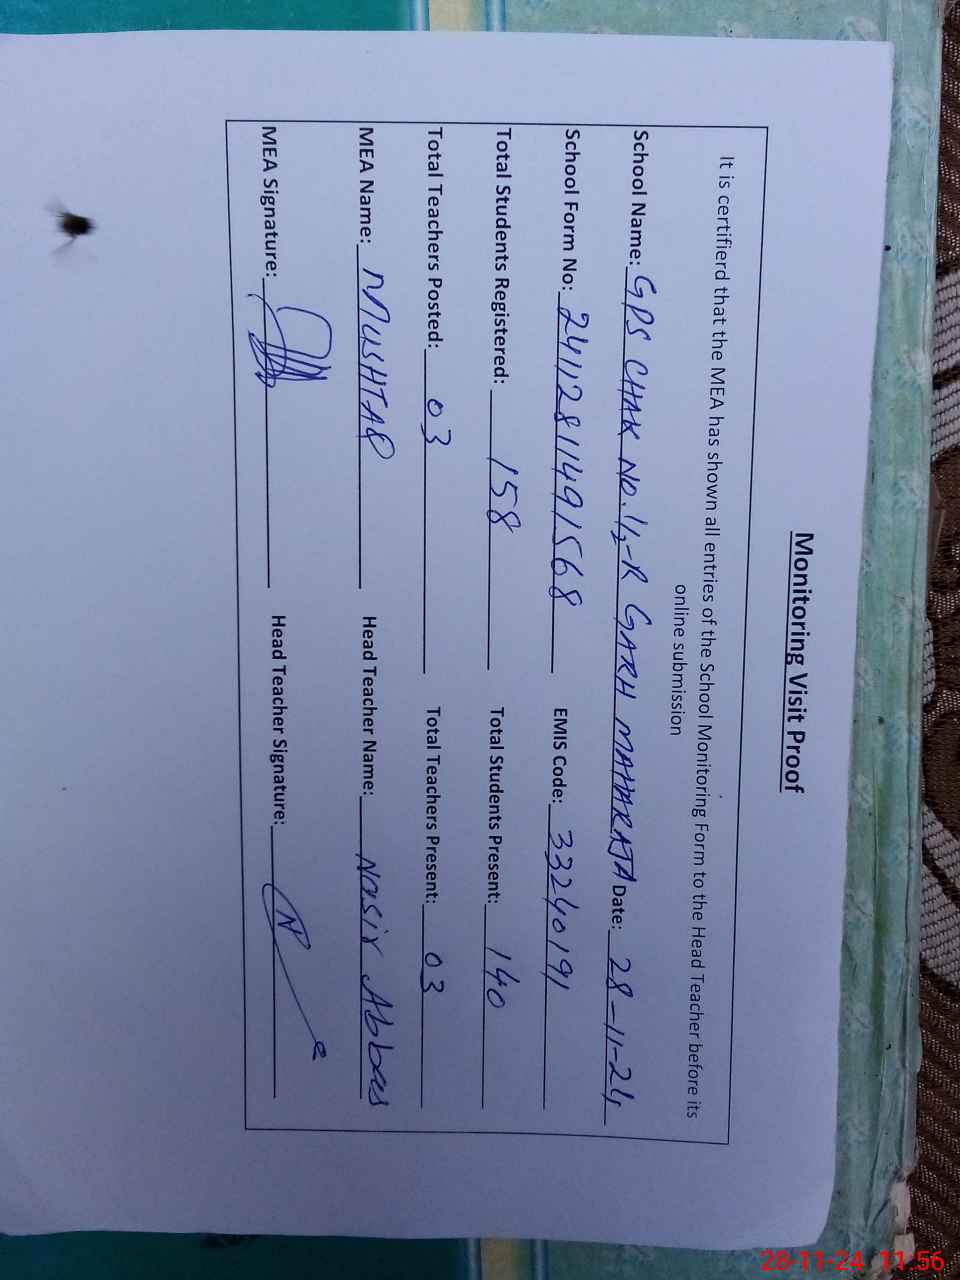 Monitoring Visit Proof
It is certifierd that the MEA has shown all entries of the School Monitoring Form to the Head Teacher before its
online submission
School Name: GPS CHAK NO. 11/2-R GARH MAHARAJA Date: 28-11-24
School Form No: 24112811491568 EMIS Code: 33240191
Total Students Registered: 158 Total Students Present: 140
Total Teachers Posted: 03 Total Teachers Present: 03
MEA Name: MUSHTAQ Head Teacher Name: Nasir Abbas
MEA Signature: Head Teacher Signature:
28-11-24 11:56